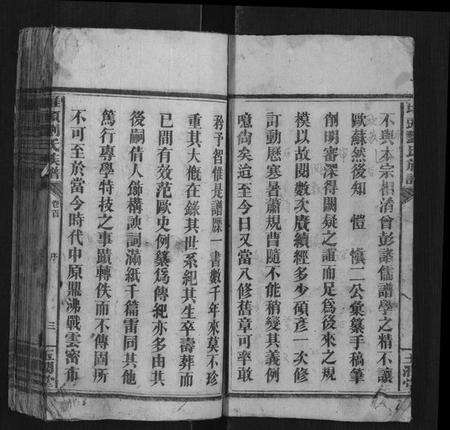 不與本宗相清曾彭諸舊譜學之精不讓
歐蘇然後知 愷 慎二公彙纂手稿筆
削明審深得闕疑之誼而足為後來之規
模以故閱數次廣續經多少碩彥一次修
訂動歷寒暑蕭規曹隨不能稍變其義例
噫尚矣迨至今日又當八修舊章可率敢
矜予智惟是譜牒一書數千年來莫不珍
重其大概在錄其世系紀其生卒壽葬而
已間有效范歐史例纂為傳紀亦多由其
後嗣倩人飾構諛詞滿紙千篇雷同其他
篤行專學特技之事蹟轉佚而不傳固所
不可至於當今時代中原鼎沸戰雲密布
劉氏族譜
卷首
序
三